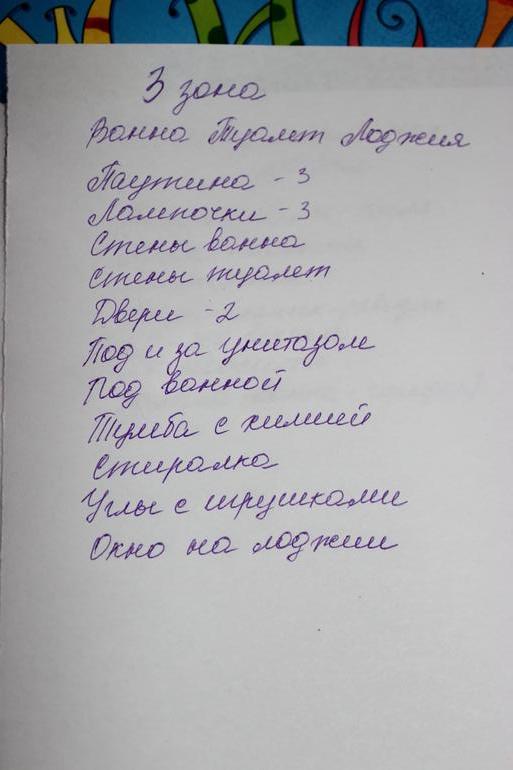 3 зона
Ванна Туалет Лоджия
Паутина - 3
Лампочки - 3
Стены ванна
Стены туалет
Двери - 2
Под и за унитазом
Под ванной
Тумба с химией
Стиралка
Углы с игрушками
Окно на лоджии